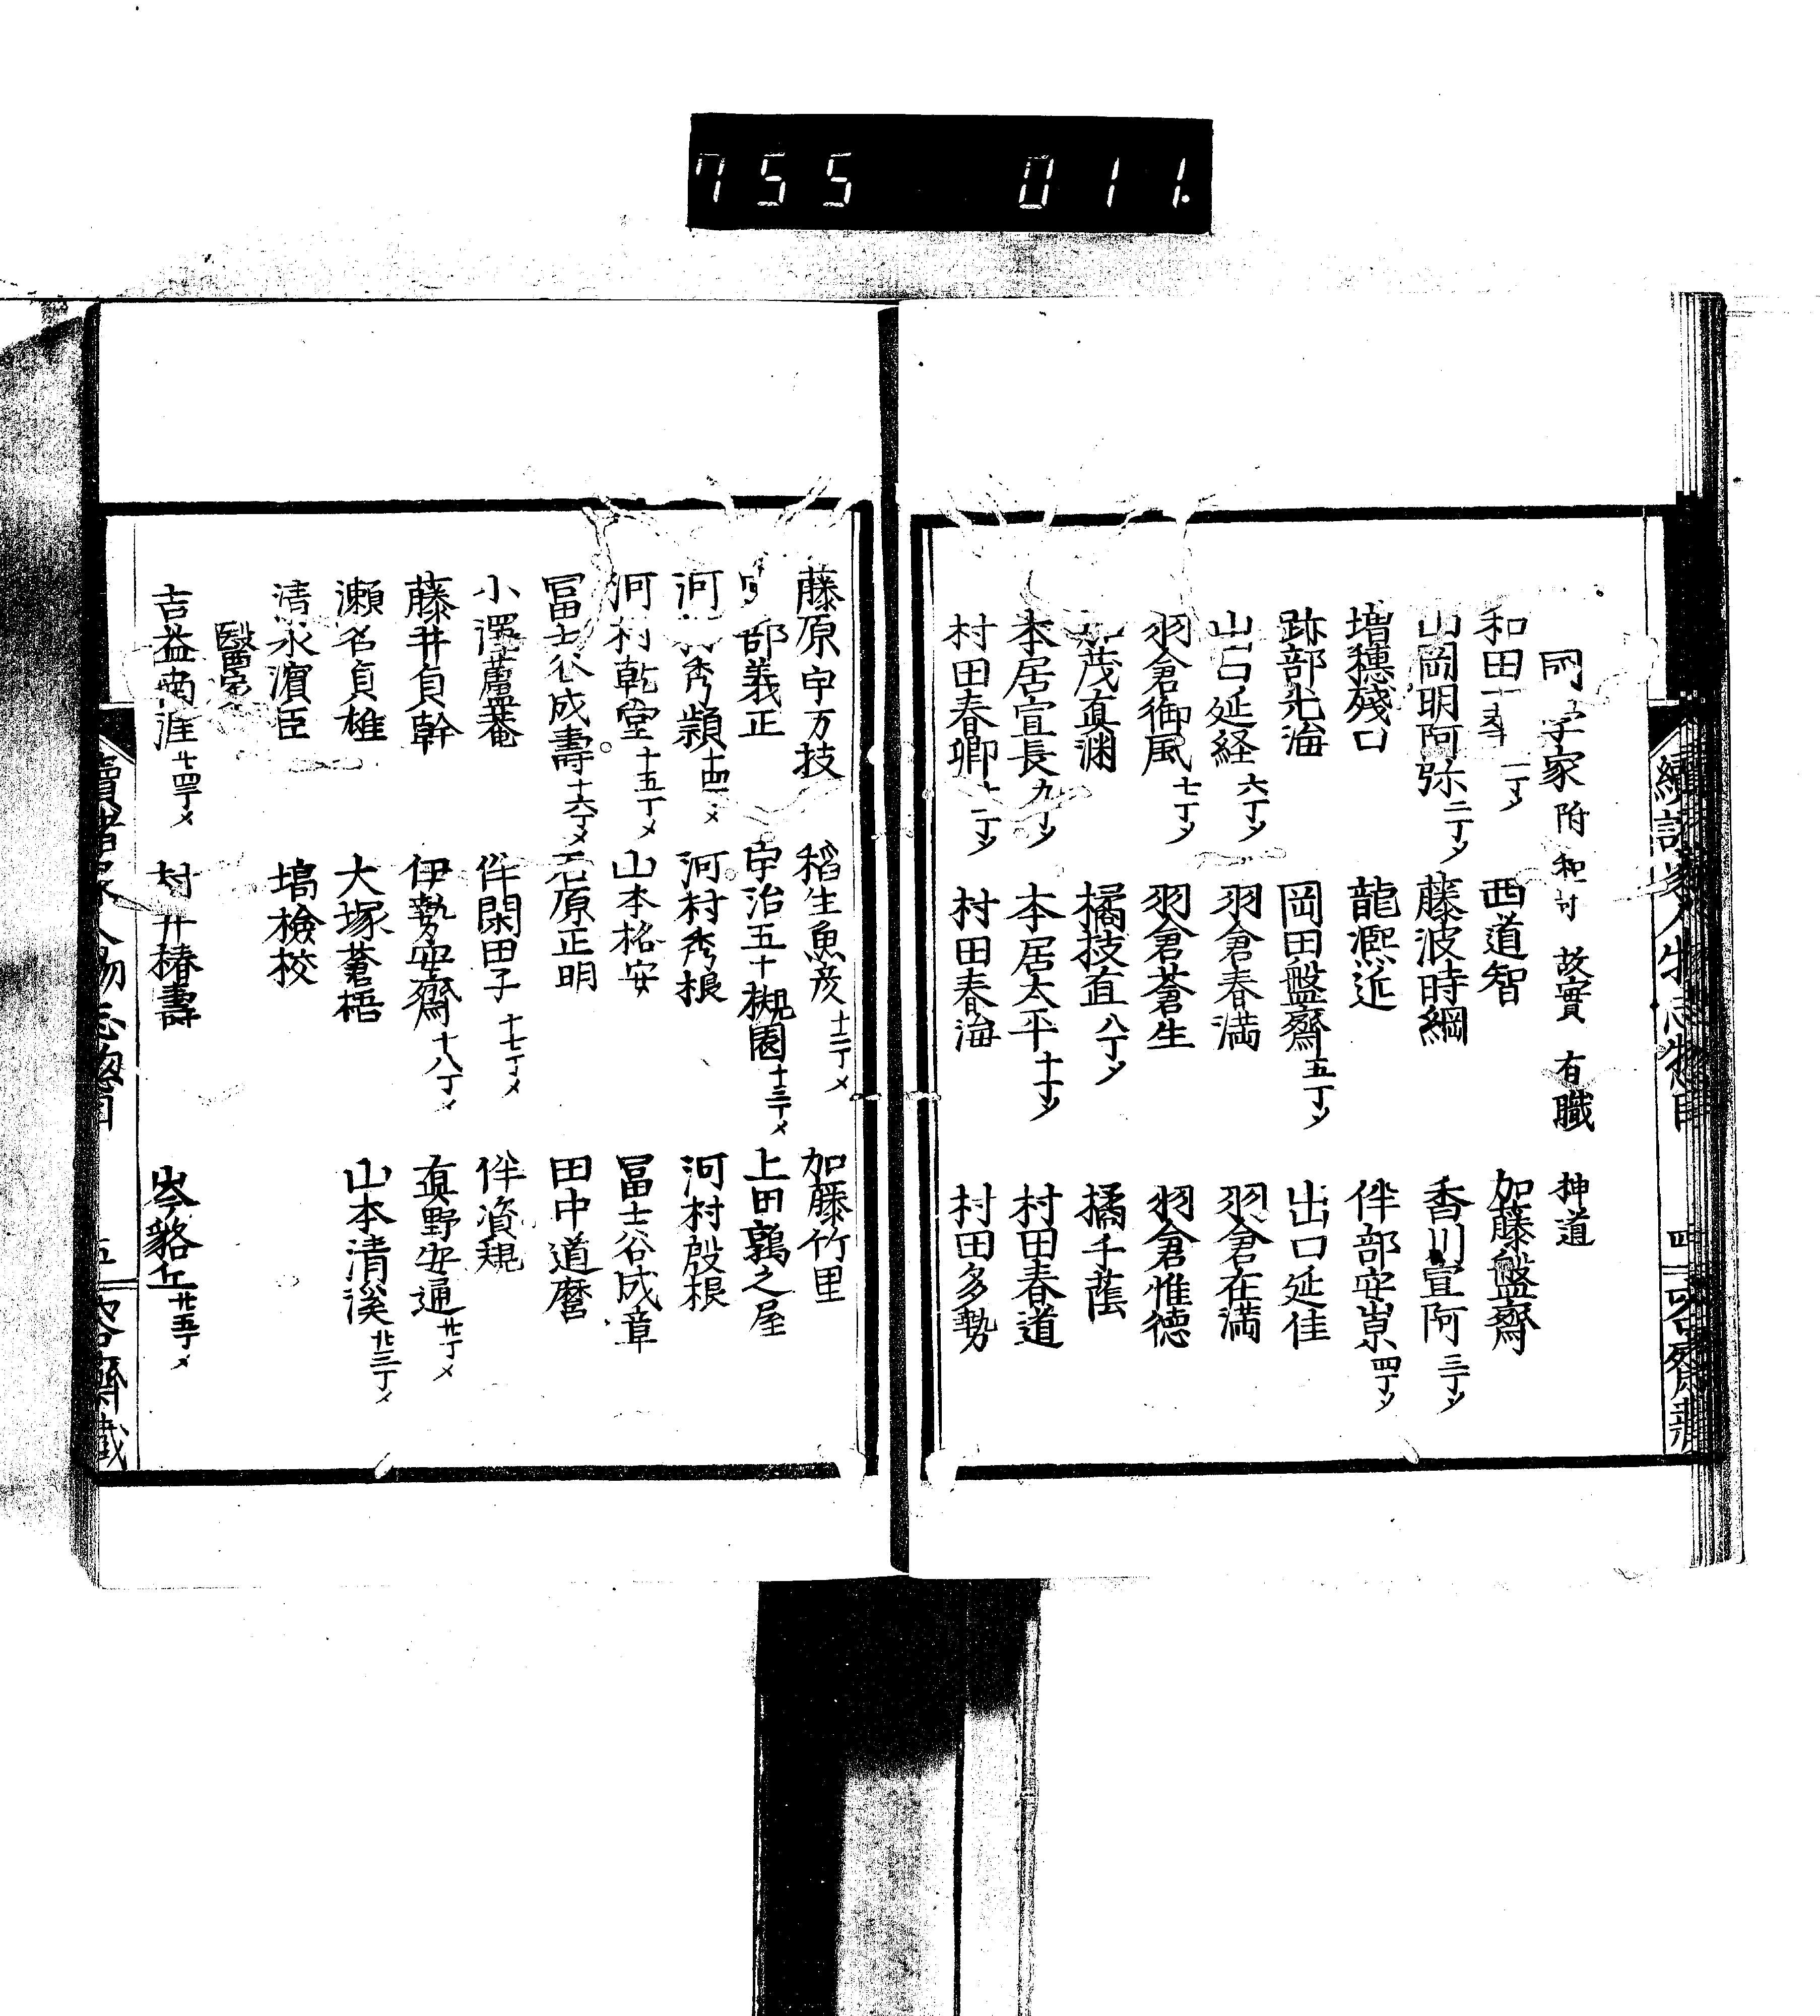 755 011.
國学家 附 和哥 故實 有職 神道
和田 一丁メ 西道智 加藤盤齋
山岡明阿弥 二丁メ 藤波時綱 香川宣阿 三丁メ
増穂殘口 龍凞近 伴部安崇 四丁メ
跡部光海 岡田盤齋 五丁メ 出口延佳
山口延経 六丁メ 羽倉春満 羽倉在満
羽倉御風 七丁メ 羽倉蒼生 羽倉惟徳
茂真渕 橘技直 八丁メ 橘千蔭
本居宣長 九丁メ 本居太平 十丁メ 村田春道
村田春郷 十一丁メ 村田春海 村田多勢
藤原宇万技 稻生魚彦 十二丁メ 加藤竹里
部義正 宇治五十槻園 十三丁メ 上田鶉之屋
河 秀頴 十四丁メ 河村秀根 河村殷根
河村乾堂 十五丁メ 山本格安 冨士谷成章
冨士谷成壽 十六丁メ 石原正明 田中道麿
小澤蘆菴 伴閑田子 十七丁メ 伴資規
藤井貞幹 伊勢安齋 十八丁メ 真野安通 廿丁メ
瀬名貞雄 大塚蒼梧 山本清溪 廿三丁メ
清水濱臣 塙檢校
醫家
吉益南涯 廿四丁メ 村井椿壽 岑貉丘 廿五丁メ